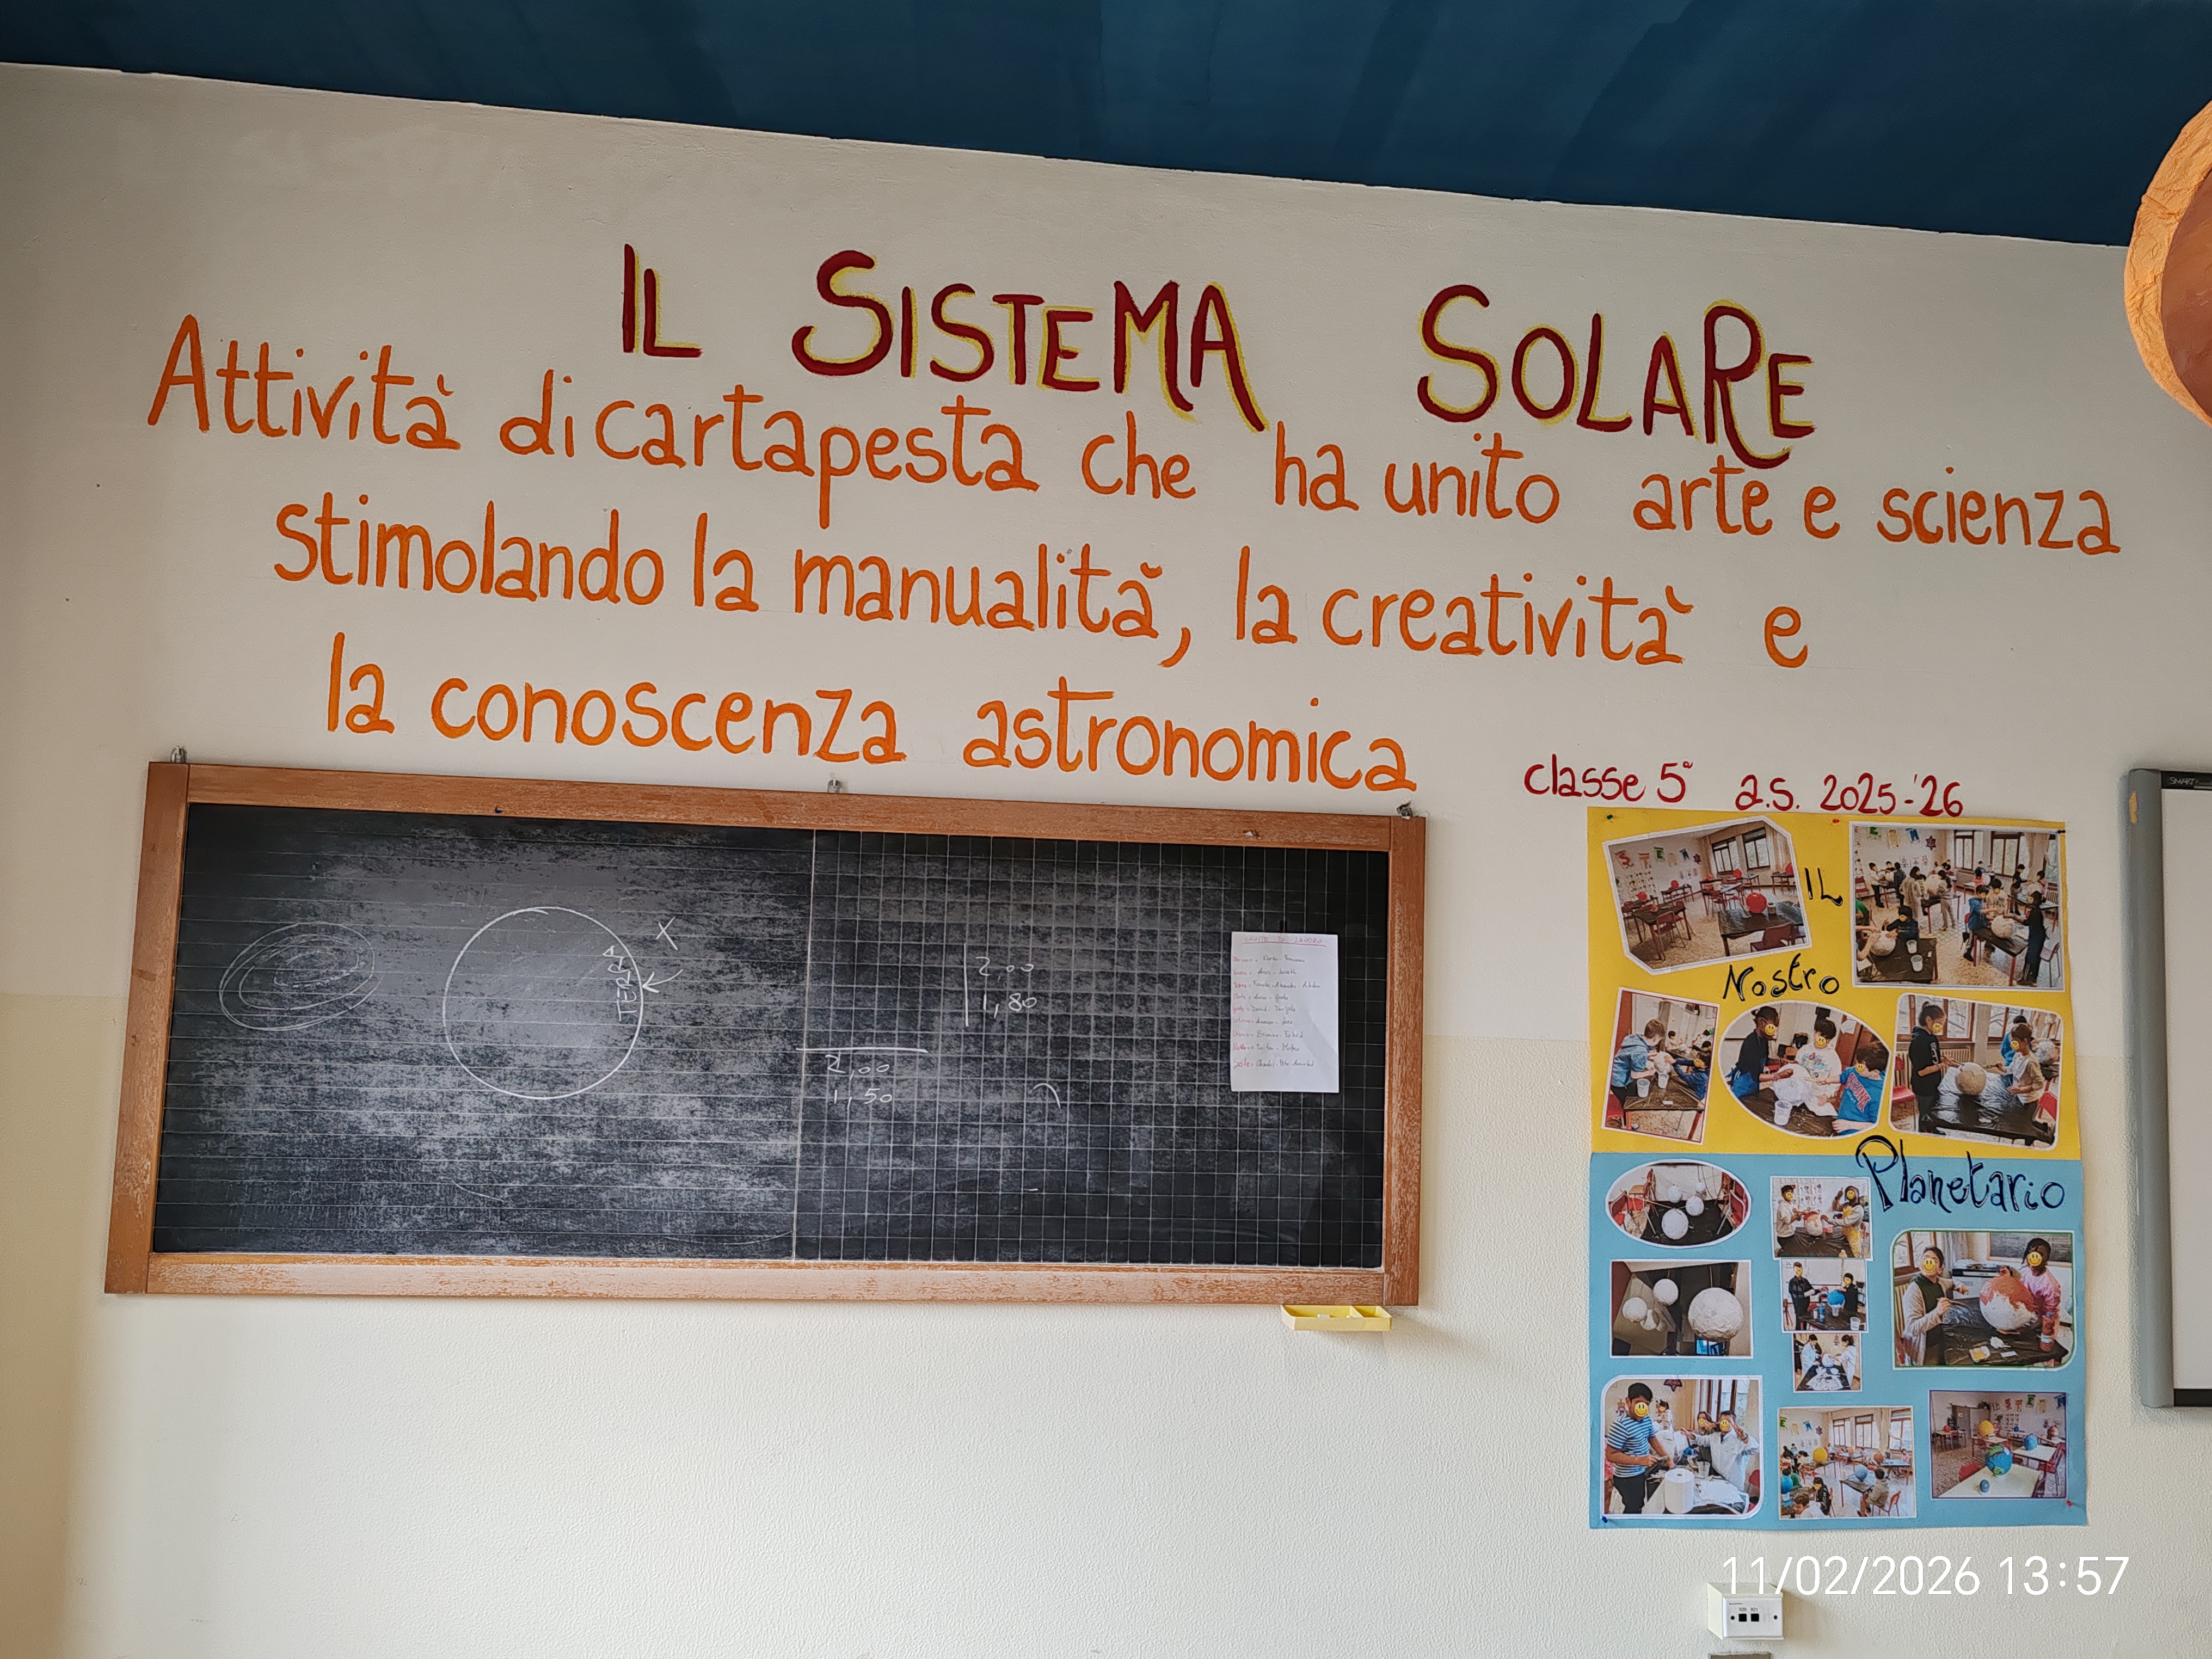 IL SISTEMA SOLARE
Attività di cartapesta che ha unito arte e scienza
stimolando la manualità, la creatività e
la conoscenza astronomica
classe 5ª a.s. 2025-'26
TERRA
X
2,00
1,80
2,00
1,50
IL
Nostro
Planetario
SMART
11/02/2026 13:57